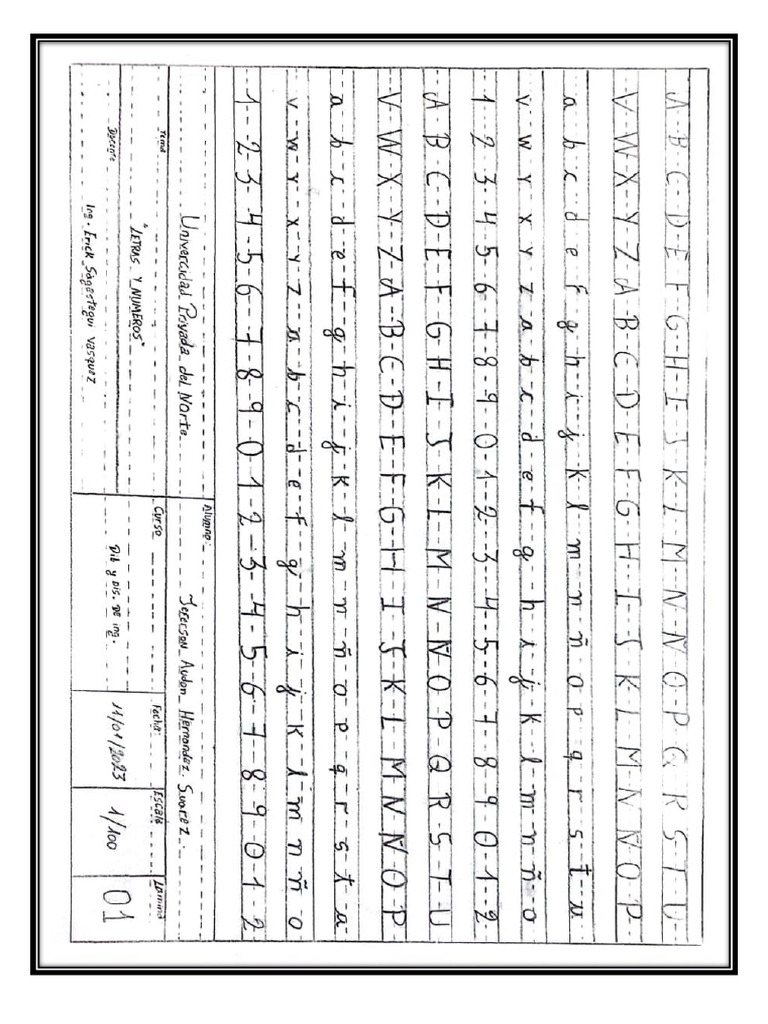 A B C D E F G H I J K L M N Ñ O P Q R S T U
V W X Y Z A B C D E F G H I J K L M N Ñ O P
a b c d e f g h i j k l m n ñ o p q r s t u
v w y x y z a b c d e f g h i j k l m n ñ o
1 2 3 4 5 6 7 8 9 0 1 2 3 4 5 6 7 8 9 0 1 2
A B C D E F G H I J K L M N Ñ O P Q R S T U
V W X Y Z A B C D E F G H I J K L M N Ñ O P
a b c d e f g h i j k l m n ñ o p q r s t u
v w y x y z a b c d e f g h i j k l m n ñ o
1 2 3 4 5 6 7 8 9 0 1 2 3 4 5 6 7 8 9 0 1 2
Universidad Privada del Norte
Alumno: Jeferson Audon Hernandez Suarez.
Tema
"LETRAS Y NUMEROS"
Docente
Ing. Erick Sagastegui Vasquez
Curso
Dib y Dis. DE ing.
Fecha:
11/01/2023
Escala
1/100
Lamina
01